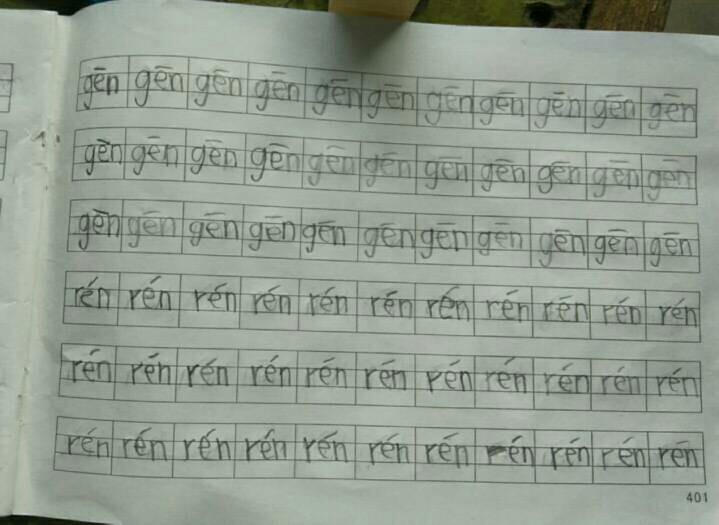 gēn gēn gēn gēn gēn gēn gēn gēn gēn gēn gēn
gèn gēn gēn gēn gēn gēn gēn gēn gēn gēn gēn
gèn gēn gēn gēn gēn gēn gēn gēn gēn gēn gēn
rén rén rén rén rén rén rén rén rēn rén rén
rén rén rén rén rén rén rén rén rén rén rén
rén rén rén rén rén rén rén rén rén rén rēn
401